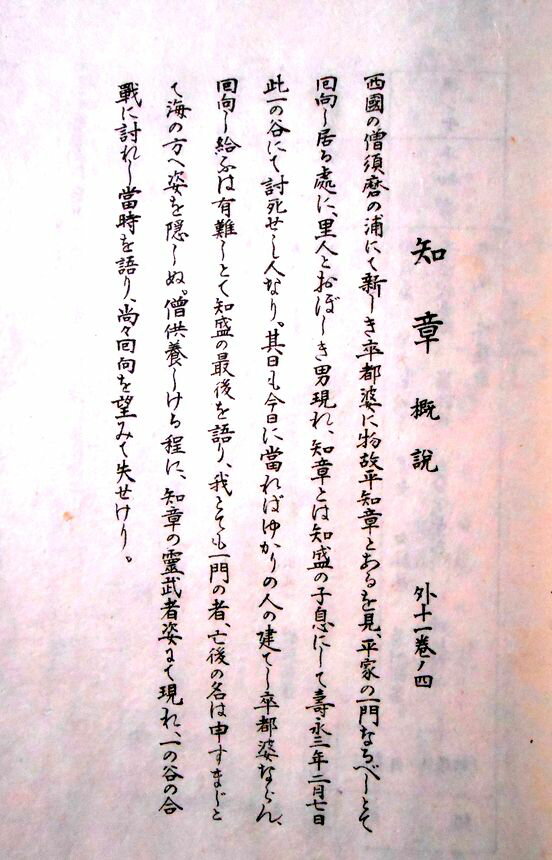 知章 概説 外十一巻ノ四
西國の僧須磨の浦にて新しき卒都婆に物故平知章とあるを見、平家の一門なるべしとて
回向し居る處に、里人とおぼしき男現れ、知章とは知盛の子息にして壽永三年二月七日
此一の谷にて討死せし人なり。其日も今日に當ればゆかりの人の建てし卒都婆ならん、
回向し給ふは有難しとて知盛の最後を語り、我とても一門の者、亡後の名は申すまじと
て海の方へ姿を隠しぬ。僧供養しける程に、知章の靈武者姿にて現れ、一の谷の合
戰に討れし當時を語り、尚々回向を望みて失せけり。